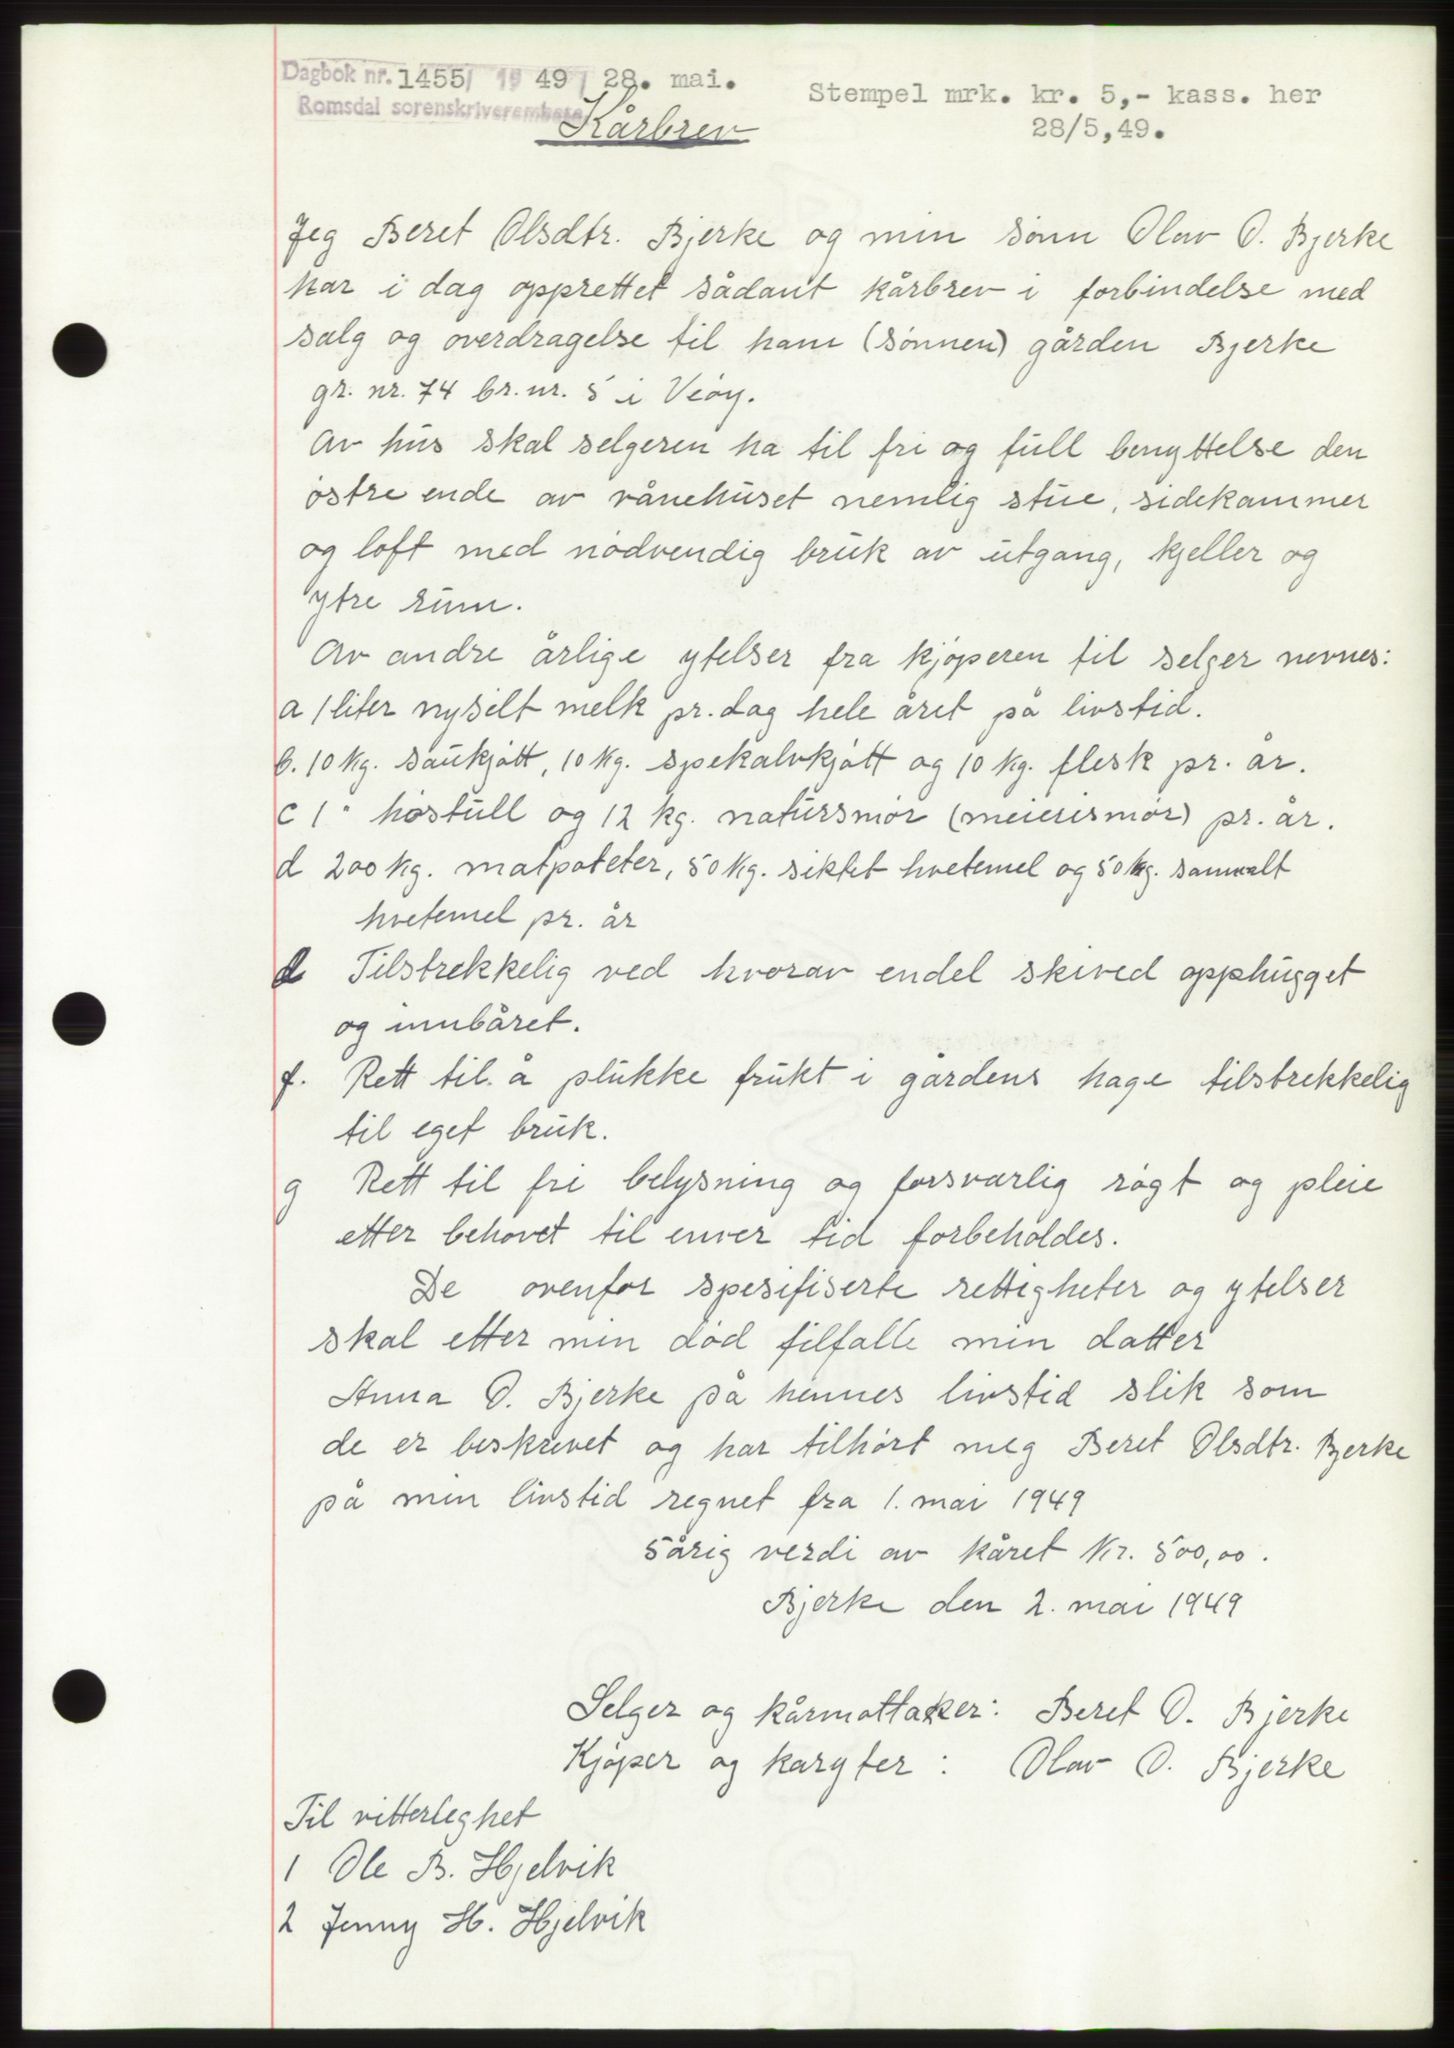 Dagbok nr. 1455/ 19 49/ 28. mai.
Romsdal sorenskriverembete
Stempel mrk. kr. 5,- kass. her
28/5,49.
Kårbrev
Jeg Beret Olsdtr. Bjerke og min sønn Olav O. Bjerke
har i dag opprettet sådant kårbrev i forbindelse med
salg og overdragelse til ham (sønnen) gården Bjerke
gr. nr. 74 br. nr. 5 i Veøy.
Av hus skal selgeren ha til fri og full benyttelse den
østre ende av vånehuset nemlig stue, sidekammer
og loft med nødvendig bruk av utgang, kjeller og
ytre rum.
Av andre årlige ytelser fra kjøperen til selger nevnes:
a 1 liter nysilt melk pr. dag hele året på livstid.
b. 10 kg. saukjøtt, 10 kg. spekalvkjøtt og 10 kg. flesk pr. år.
c 1 " høstull og 12 kg. natursmør (meierismør) pr. år.
d 200 kg. matpoteter, 50 kg. siktet hvetemel og 50 kg. samvalt
hvetemel pr. år
e Tilstrekkelig ved hvorav endel skived opphugget
og innbåret.
f. Rett til å plukke frukt i gårdens hage tilstrekkelig
til eget bruk.
g Rett til fri belysning og forsvarlig røgt og pleie
etter behovet til enver tid forbeholdes.
De ovenfor spesifiserte rettigheter og ytelser
skal etter min død tilfalle min datter
Anna O. Bjerke på hennes livstid slik som
de er beskrevet og har tilhørt meg Beret Olsdtr. Bjerke
på min livstid regnet fra 1. mai 1949
5årig verdi av kåret kr. 500,00.
Bjerke den 2. mai 1949
Selger og kårmottaker: Beret O. Bjerke
Kjøper og kåryter : Olav O. Bjerke
Til vitterleghet
1 Ole B. Hjelvik
2 Jenny H. Hjelvik